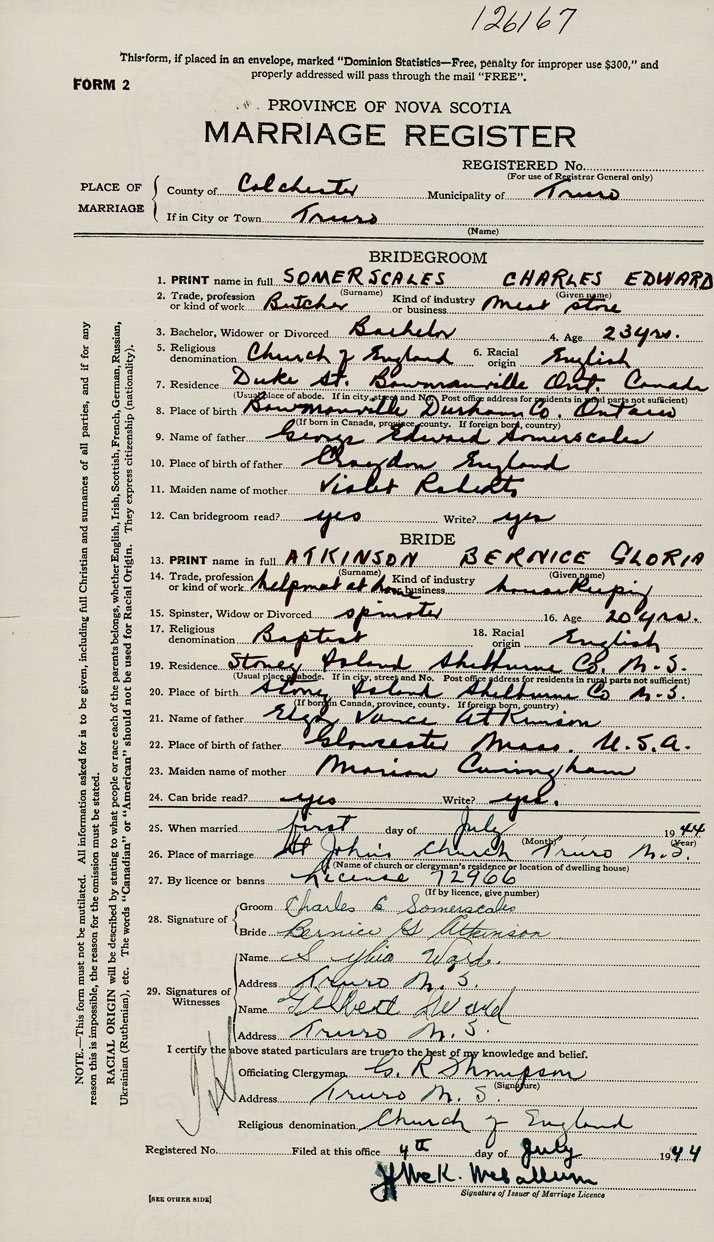 126167
This form, if placed in an envelope, marked "Dominion Statistics—Free, penalty for improper use $300," and
properly addressed will pass through the mail "FREE".
FORM 2
PROVINCE OF NOVA SCOTIA
MARRIAGE REGISTER
REGISTERED No.
(For use of Registrar General only)
PLACE OF MARRIAGE
County of Colchester Municipality of Truro
If in City or Town Truro
(Name)
BRIDEGROOM
1. PRINT name in full SOMERSCALES CHARLES EDWARD
(Surname) (Given name)
2. Trade, profession or kind of work Butcher Kind of industry or business Meat store
3. Bachelor, Widower or Divorced Bachelor 4. Age 23 yrs.
5. Religious denomination Church of England 6. Racial origin English
7. Residence Duke St. Bowmanville Ont. Canada
(Usual place of abode. If in city, street and No. Post office address for residents in rural parts not sufficient)
8. Place of birth Bowmanville Durham Co. Ontario
(If born in Canada, province, county. If foreign born, country)
9. Name of father George Edward Somerscales
10. Place of birth of father Croydon England
11. Maiden name of mother Violet Roberts
12. Can bridegroom read? yes Write? yes
BRIDE
13. PRINT name in full ATKINSON BERNICE GLORIA
(Surname) (Given name)
14. Trade, profession or kind of work helpmet at home Kind of industry or business housekeeping
15. Spinster, Widow or Divorced spinster 16. Age 20 yrs.
17. Religious denomination Baptist 18. Racial origin English
19. Residence Stoney Island Shelburne Co. N.S.
(Usual place of abode. If in city, street and No. Post office address for residents in rural parts not sufficient)
20. Place of birth Stony Island Shelburne Co N.S.
(If born in Canada, province, county. If foreign born, country)
21. Name of father Vance Atkinson
22. Place of birth of father Gloucester Mass. U.S.A.
23. Maiden name of mother Marion Cuningham
24. Can bride read? yes Write? yes.
25. When married first day of July 1944
(Month) (Year)
26. Place of marriage St John's Church Truro N.S.
(Name of church or clergyman's residence or location of dwelling house)
27. By licence or banns License 72966
(If by licence, give number)
28. Signature of
Groom Charles E Somerscales
Bride Bernice G Atkinson
29. Signatures of Witnesses
Name Sylvia Ward.
Address Truro N.S.
Name Gilbert Ward
Address Truro N.S.
I certify the above stated particulars are true to the best of my knowledge and belief.
Officiating Clergyman G. R Thompson
(Signature)
Address Truro N.S.
Religious denomination Church of England
Registered No. Filed at this office 4th day of July 1944
Signature of Issuer of Marriage Licence
[SEE OTHER SIDE]
NOTE.—This form must not be mutilated. All information asked for is to be given, including full Christian and surnames of all parties, and if for any
reason this is impossible, the reason for the omission must be stated.
RACIAL ORIGIN will be described by stating to what people or race each of the parents belongs, whether English, Irish, Scottish, French, German, Russian,
Ukrainian (Ruthenian), etc. The words "Canadian" or "American" should not be used for Racial Origin. They express citizenship (nationality).